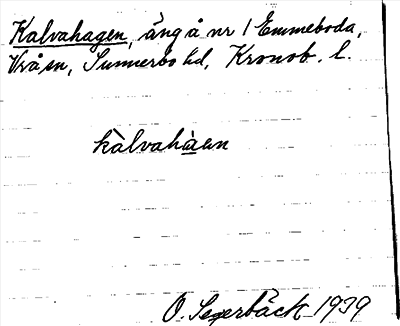 Kalvahagen, äng å nr 1 Emmeboda,
Vrå sn, Sunnerbo hd, Kronob. l.
kàlvahàgen
O. Segerbäck 1939